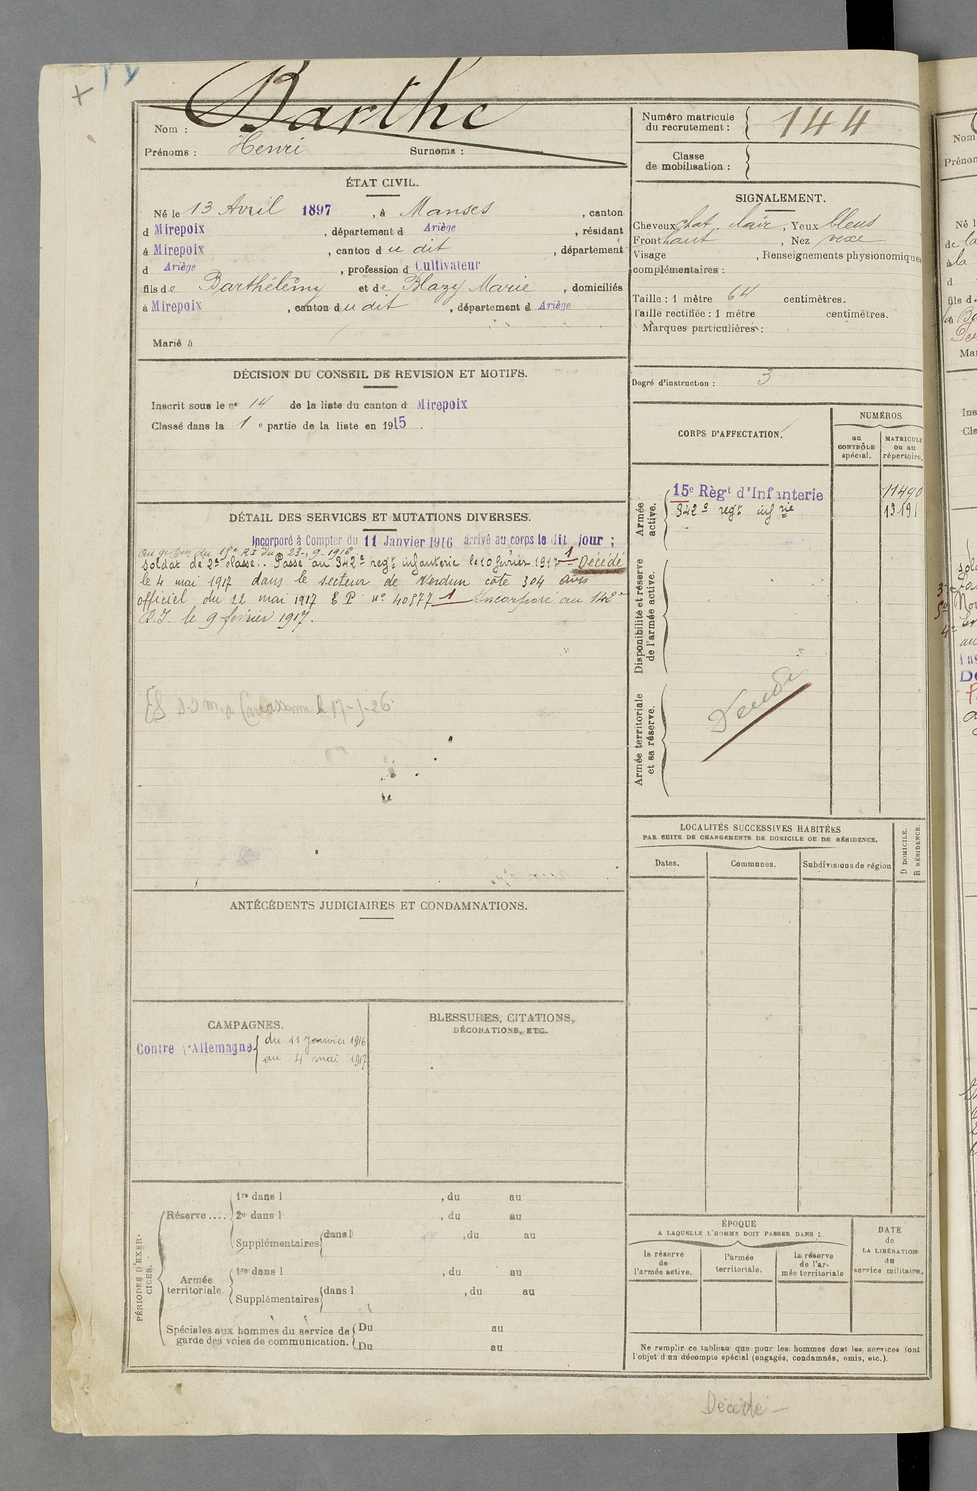 Barthe
Nom :
Prénoms : Henri Surnoms :
Numéro matricule
du recrutement : 144
Classe
de mobilisation :
ÉTAT CIVIL.
Né le 13 Avril 1897, à Manses, canton
d Mirepoix, département d Ariège, résidant
à Mirepoix, canton du dit, département
d Ariège, profession d Cultivateur
fils de Barthélemy et de Blazy Marie, domiciliés
à Mirepoix, canton du dit, département d Ariège
Marié à
SIGNALEMENT.
Cheveux chat clair, Yeux bleus
Front haut, Nez vexe
Visage , Renseignements physionomiques
complémentaires :
Taille : 1 mètre 64 centimètres.
Taille rectifiée : 1 mètre centimètres.
Marques particulières :
Degré d'instruction : 3
DÉCISION DU CONSEIL DE REVISION ET MOTIFS.
Inscrit sous le nº 14 de la liste du canton d Mirepoix
Classé dans la 1 e partie de la liste en 1915.
DÉTAIL DES SERVICES ET MUTATIONS DIVERSES.
Incorporé à Compter du 11 Janvier 1916 arrivé au corps le dit jour ;
du 23-9-1916
soldat de 2e classe.. Passé au 342e regt infanterie le 10 février 1917 1 Décédé
le 4 mai 1917 dans le secteur de Verdun côte 304 avis
officiel du 22 mai 1917 E P nº 40577 1 Incorporé au 142e
R.I. le 9 février 1917.
CORPS D'AFFECTATION.
NUMÉROS
au
CONTRÔLE
spécial.
MATRICULE
OU AU
répertoire.
Armée
active.
15e Régt d'Infanterie 11490
342e regt infrie 13191
Disponibilité et réserve
de l'armée active.
Armée territoriale
et sa réserve.
LOCALITÉS SUCCESSIVES HABITÉES
PAR SUITE DE CHANGEMENTS DE DOMICILE OU DE RÉSIDENCE.
Dates. Communes. Subdivisions de région
D DOMICILE.
R RÉSIDENCE.
ANTÉCÉDENTS JUDICIAIRES ET CONDAMNATIONS.
CAMPAGNES.
Contre l'Allemagne du 11 janvier 1916
au 4 mai 1917
BLESSURES, CITATIONS,
DÉCORATIONS, ETC.
PÉRIODES D'EXERCICES.
Réserve....
1re dans l , du au
2e dans l , du au
Supplémentaires dans l , du au
Armée
territoriale.
1re dans l , du au
Supplémentaires dans l , du au
Spéciales aux hommes du service de
garde des voies de communication.
Du au
Du au
ÉPOQUE
A LAQUELLE L'HOMME DOIT PASSER DANS :
la réserve
de
l'armée active.
l'armée
territoriale.
La réserve
de l'ar-
mée territoriale
DATE
de
LA LIBÉRATION
du
service militaire.
Ne remplir ce tableau que pour les hommes dont les services font
l'objet d'un décompte spécial (engagés, condamnés, omis, etc.).
Décédé